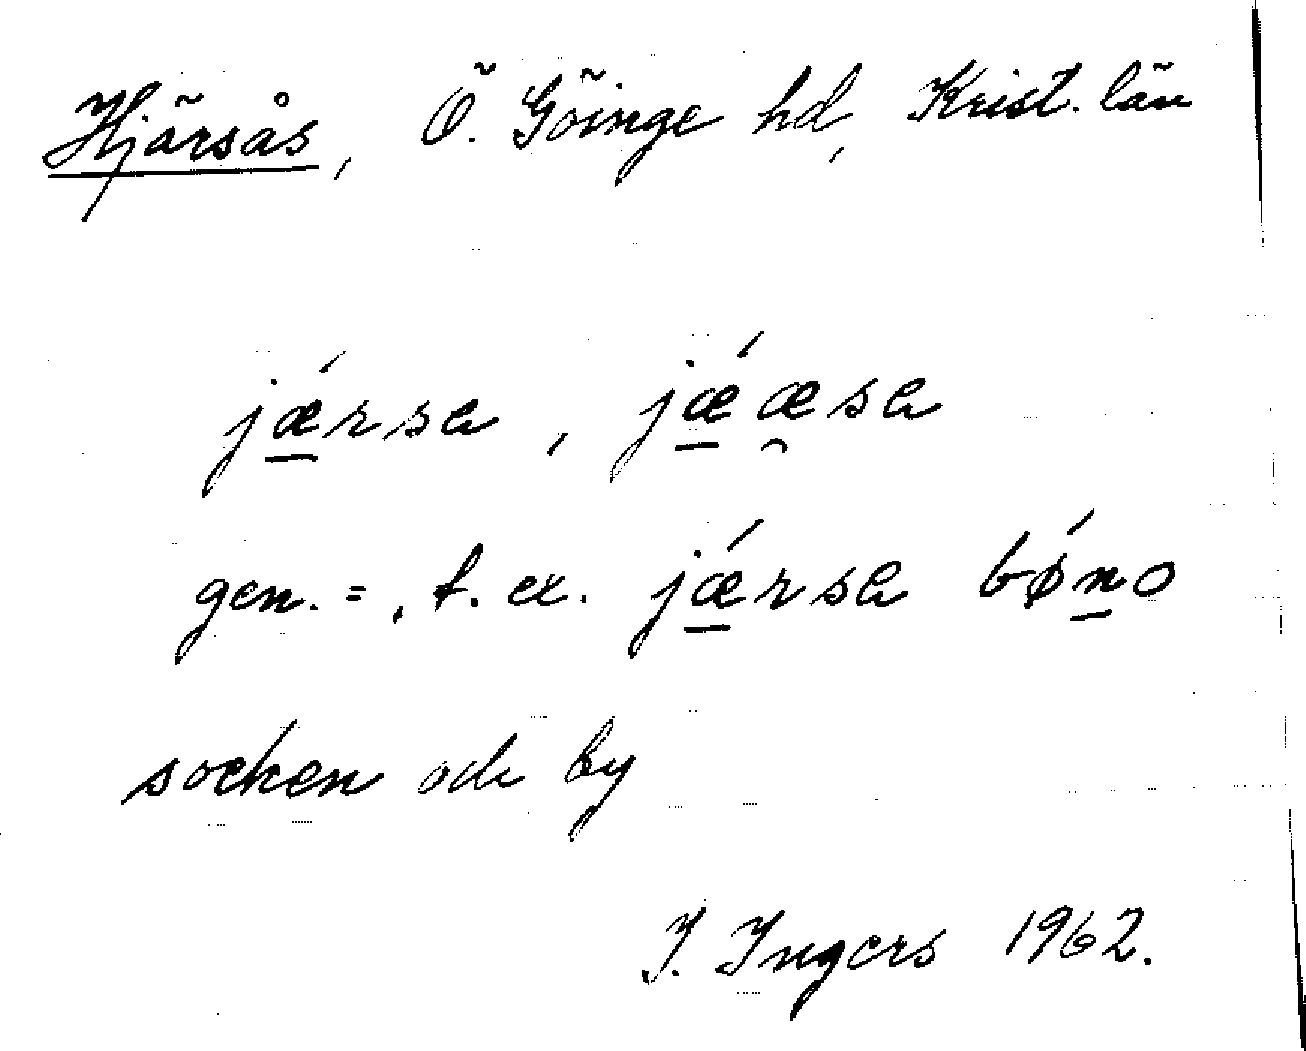 Hjärsås, Ö. Göinge hd, Krist. län
jǽ̲rsa, jǽ̲æ̯sa
gen. =, t. ex. jǽ̲rsa bǿn̲o
socken och by
I. Ingers 1962.